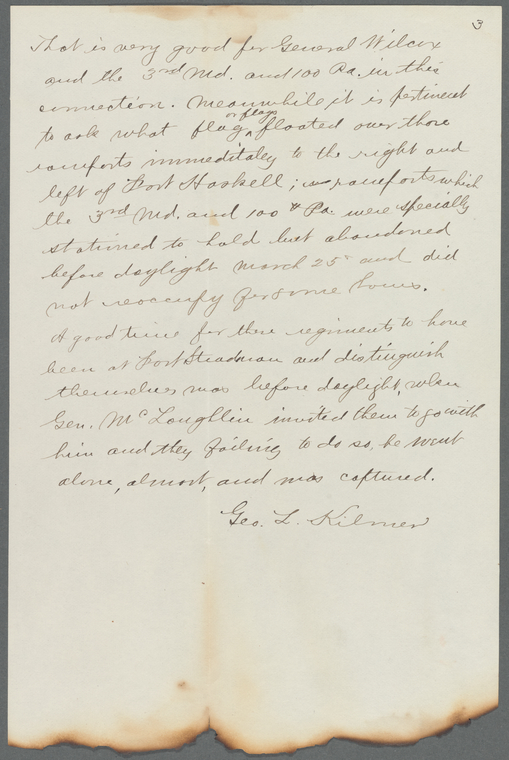 3
That is very good for General Wilcox
and the 3rd Md. and 100 Pa. in this
connection. Meanwhile it is pertinent
to ask what flag ^ or flags floated over those
ramforts immeditaley to the right and
left of Fort Haskell; ramforts which
the 3rd Md. and 100th Pa. were specially
stationed to hold but abandoned
before daylight March 25th and did
not reoccupy for some hours.
A good time for these regiments to have
been at Fort Steadman and distinguish
themselves was before daylight, when
Gen. McLoughlin invited them to go with
him and they failing to do so, he went
alone, almost, and was captured.
Geo. L. Kilmer